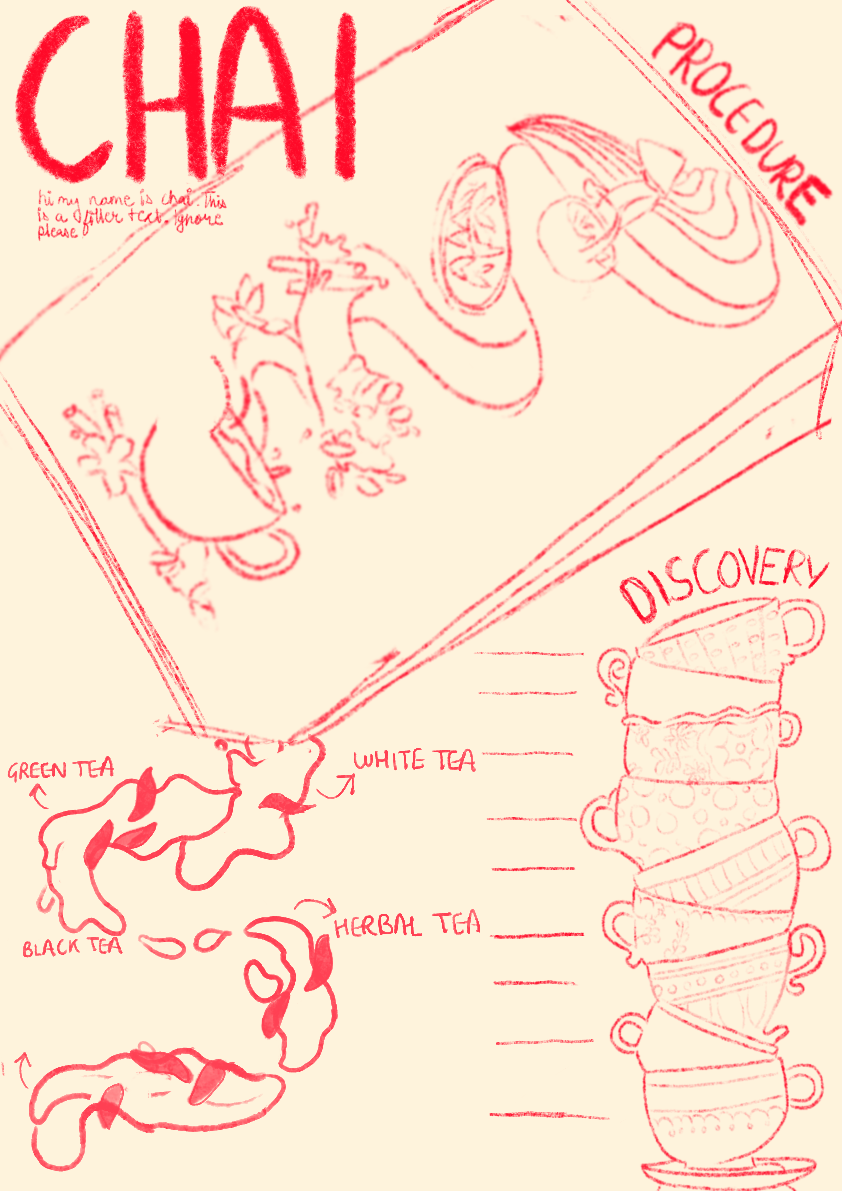 CHAI
hi my name is chai. This
is a filler text. Ignore
please
PROCEDURE
DISCOVERY
GREEN TEA
WHITE TEA
BLACK TEA
HERBAL TEA